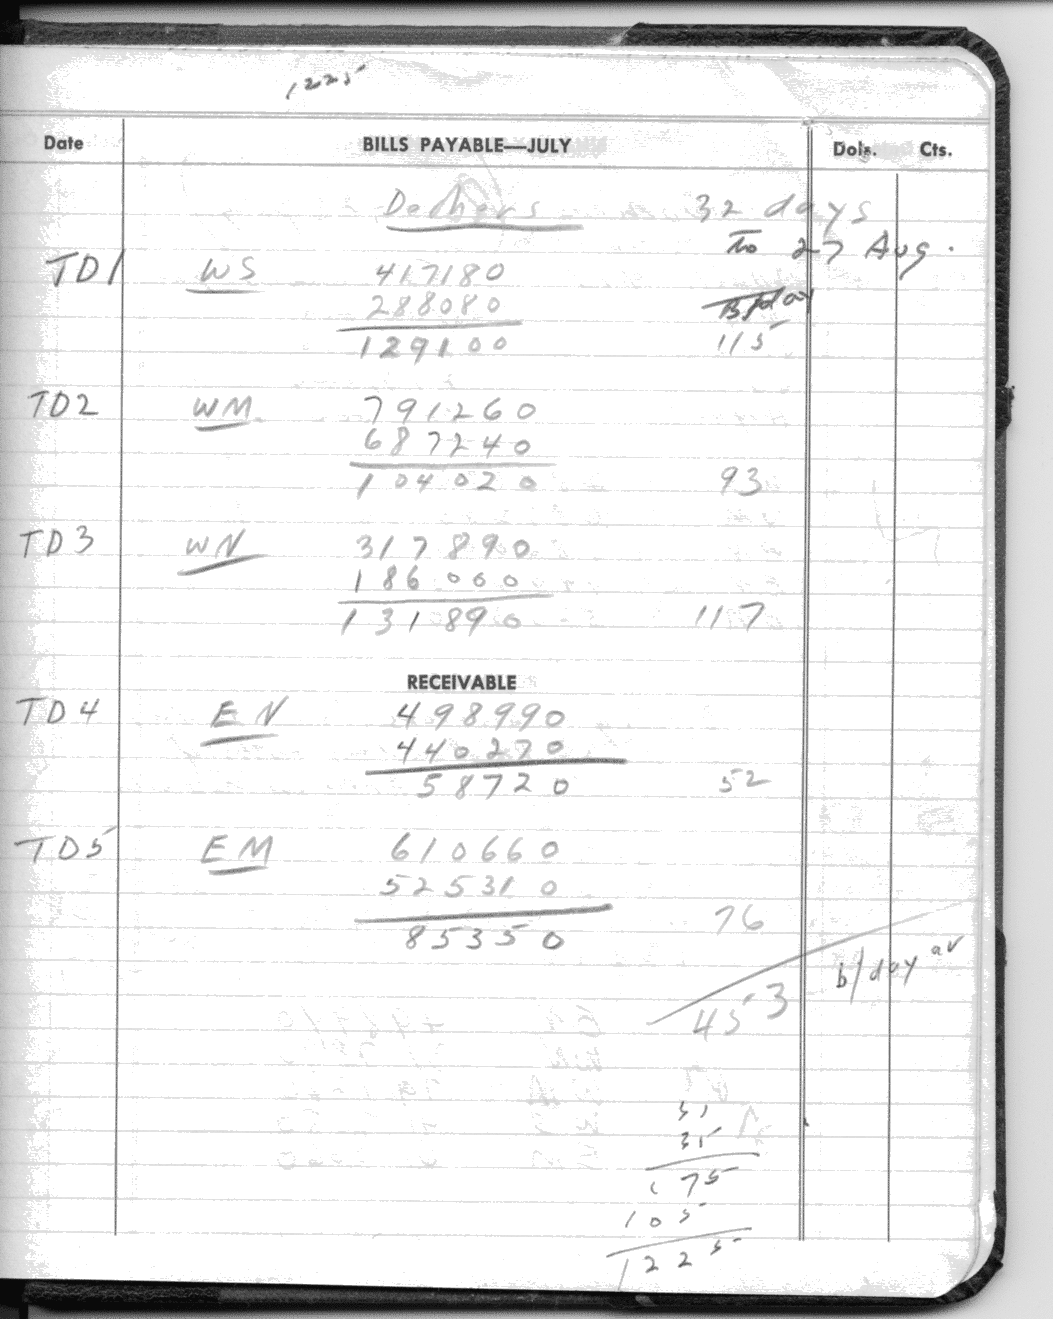 1225
Date BILLS PAYABLE—JULY Dols. Cts.
Dehners 32 days
To 27 Aug.
TD1 WS 417180
288080 B/day
129100 115
TD2 WM 791260
687240
104020 93
TD3 WN 317890
186000
131890 117
RECEIVABLE
TD4 EN 498990
440270
58720 52
TD5 EM 610660
525310
85350 76
453 b/day av
35
35
175
105
1225